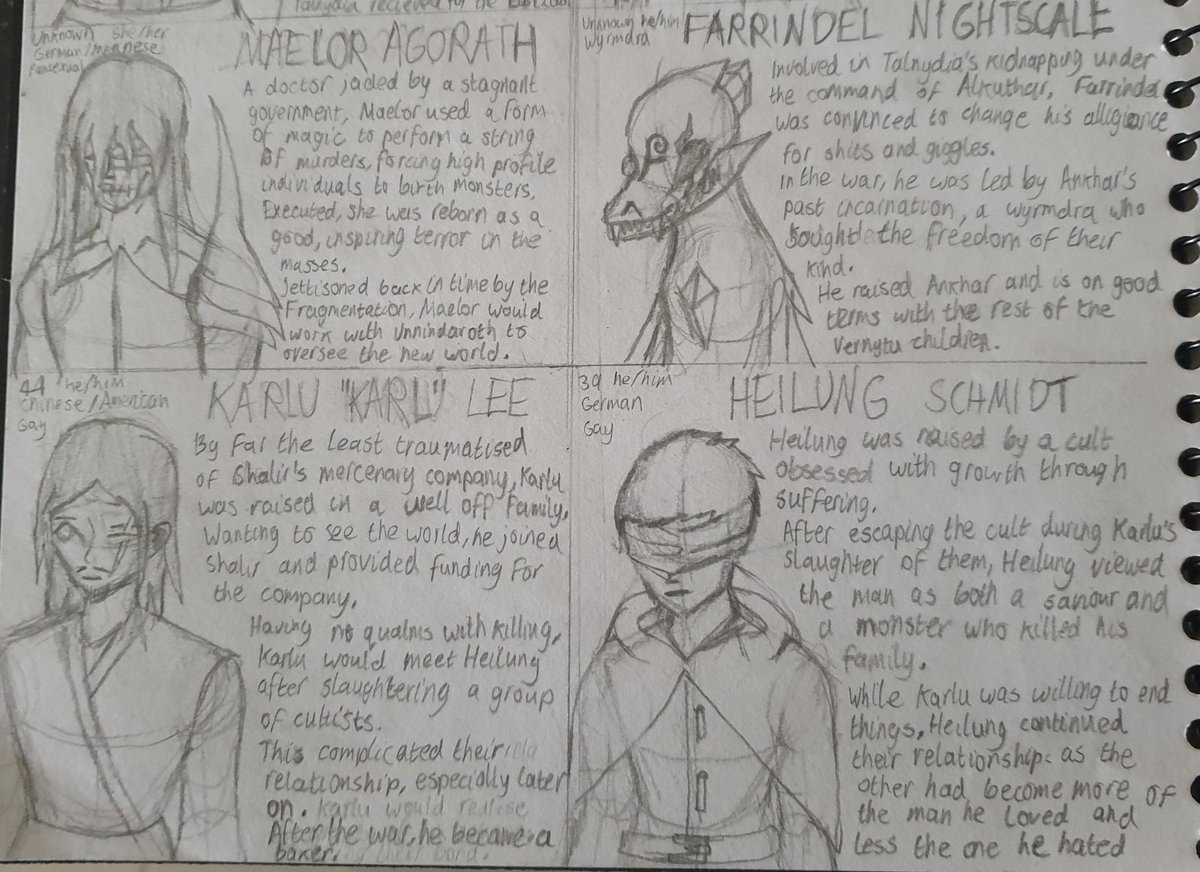 Talnydia recieved for the
Unknown she/her
German/Japanese
Pansexual
MAELOR AGORATH
A doctor jaded by a stagnant
government, Maelor used a form
of magic to perform a string
of murders, forcing high profile
individuals to birth monsters.
Executed, she was reborn as a
good, inspiring terror in the
masses.
Jettisoned back in time by the
Fragmentation, Maelor would
work with Unnindaroth to
oversee the new world.
Unknown he/him
wyrmdra
FARRINDEL NIGHTSCALE
Involved in Talnydia's kidnapping under
the command of Alkuthar, Farrindel
was convinced to change his allegiance
for shits and giggles.
In the war, he was led by Ankhar's
past incarnation, a wyrmdra who
sought the freedom of their
kind.
He raised Ankhar and is on good
terms with the rest of the
Vernytu children.
44 he/him
Chinese/American
Gay
KARLU "KARLU" LEE
By far the least traumatised
of Shalir's mercenary company, Karlu
was raised in a well off family,
Wanting to see the world, he joined
Shalir and provided funding for
the company.
Having no qualms with killing,
Karlu would meet Heilung
after slaughtering a group
of cultists.
This complicated their
relationship, especially later
on. Karlu would realise
After the war, he became a
baker.
39 he/him
German
Gay
HEILUNG SCHMIDT
Heilung was raised by a cult
obsessed with growth through
suffering.
After escaping the cult during Karlu's
slaughter of them, Heilung viewed
the man as both a saviour and
a monster who killed his
family.
While Karlu was willing to end
things, Heilung continued
their relationship as the
other had become more of
the man he loved and
less the one he hated